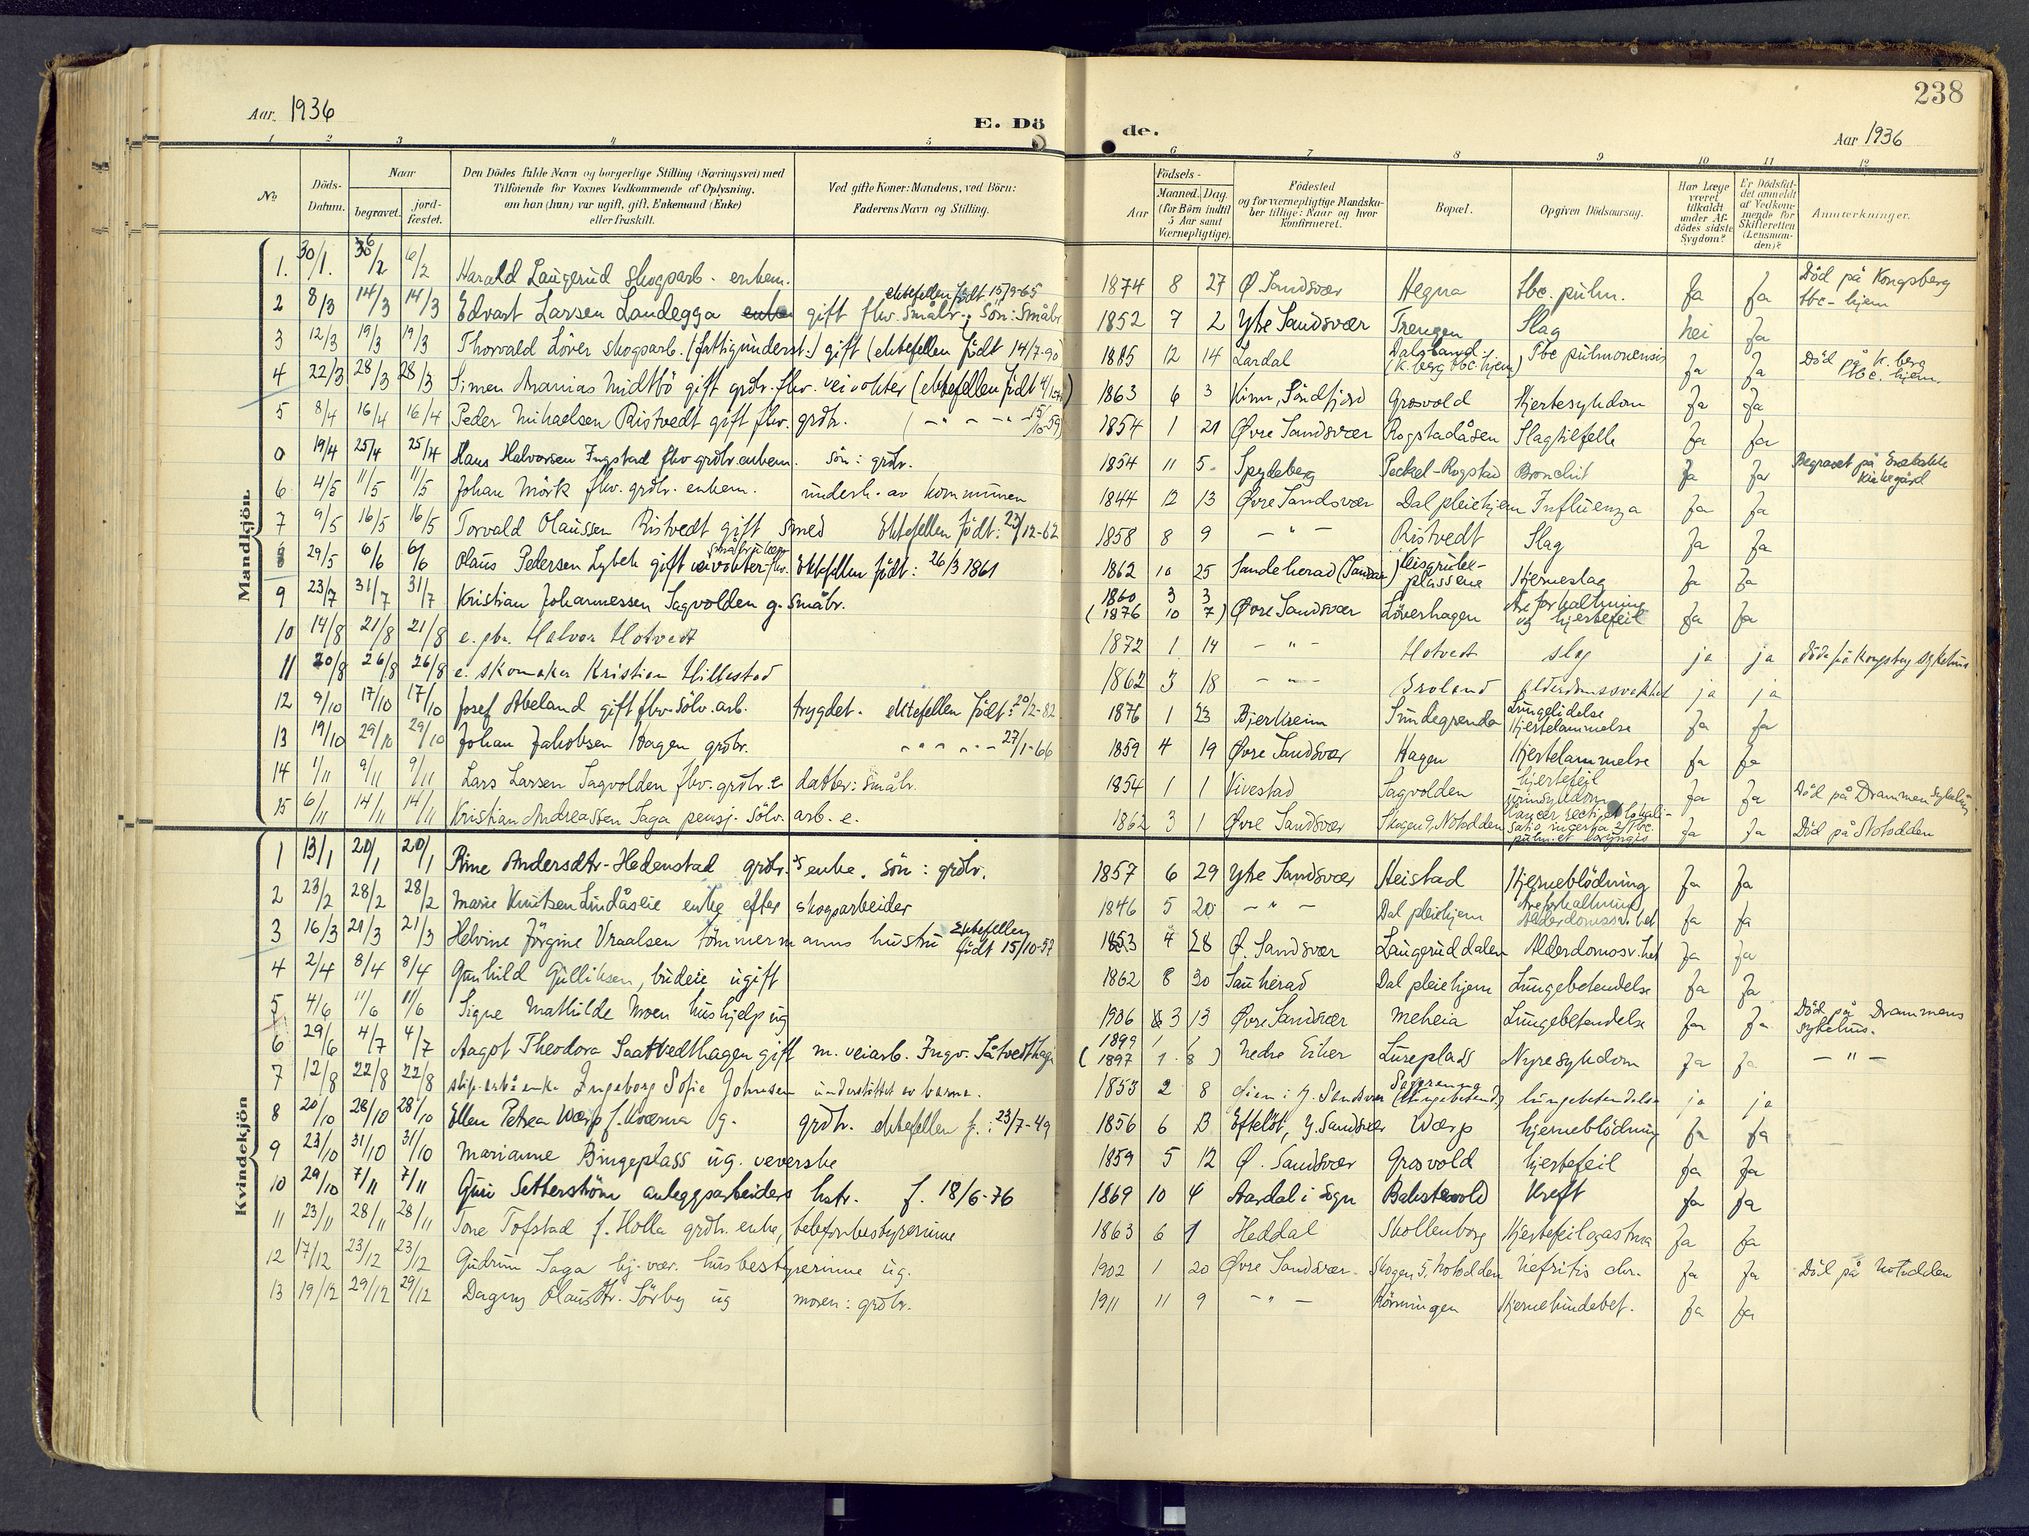 238
Aar. 1936
E. Dö
de.
Aar 1936
1 2 3 4 5 6 7 8 9 10 11 12
No
Döds-Datum.
Naar
begravet.
jord-fæstet.
Den Dödes fulde Navn og borgerlige Stilling (Næringsvei) med
Tilföiende for Voxnes Vedkommende af Oplysning,
om han (hun) var ugift, gift, Enkemand (Enke)
eller fraskilt.
Ved gifte Koner: Mandens, ved Börn:
Faderens Navn og Stilling.
Födsels-
Aar
Maaned.
Dag.
(for Börn indtil
5 Aar samt
Værnepligtige).
Födested
og for værnepligtige Mandska-
ber tillige: Naar og hvor
konfirmeret.
Bopæl.
Opgiven Dödsaarsag.
Har Læge
været
tilkaldt
under Af-
dödes sidste
Sygdom?
Er Dödsfal-
det anmeldt
af Vedkom-
mende for
Skifteretten
(Lensman-
den)?
Anmærkninger.
Mandkjön.
1. 30/1. 6/2 6/2 Harald Laugerud skogsarb. enkem. 1874 8 27 Ø Sandsvær Hegna tbc. pulm. Ja Ja Död på Kongsberg tbc-hjem
2 8/3 14/3 14/3 Edvart Larsen Landegga gift fhv. småbr.; Sön: småbr ektefellen födt 15/9-65 1852 7 2 Ytre Sandsvær Trengen Slag nei Ja
3 12/3 19/3 19/3 Thorvald Löver skogsarb. (fattigunderst.) gift (ektefellen födt 14/7-90) 1885 12 14 Lardal Dalsland (K.berg tbc-hjem) Tbc pulmonensis Ja Ja Död på K.berg tbc. hjem.
4 22/3 28/3 28/3 Simen Ananias Midtbö gift grdbr. fhv. veivokter (ektefellen födt 1863 6 3 Kinn, Söndfjord Grosvold Hjertesykdom Ja Ja
5 8/4 16/4 16/4 Peder Mikaelsen Ristvedt gift fhv. grdbr. ( — " — " — 15/10-59) 1854 1 21 Øvre Sandsvær Rogstadåsen Slagtilfelle Ja Ja
0 19/4 25/4 25/4 Hans Halvorsen Ingstad fhv grdbr enkem. sön: grdbr. 1854 11 5 Spydeberg Peckel-Rogstad Bronchit Ja Ja Begravet på kirkegård
6 4/5 11/5 11/5 Johan Mörk fhv. grdbr. enkem. underh. av kommunen 1844 12 13 Øvre Sandsvær Dal pleiehjem Influenza Ja Ja
7 9/5 16/5 16/5 Torvald Olaussen Ristvedt gift smed Ektefellen födt: 23/12-62 1858 8 9 — " — Ristvedt Slag Ja Ja
8 29/5 6/6 6/6 Olaus Pedersen Lybek gift veivokter fhv. Ektefellen födt: 26/3 1861 1862 10 25 Sandeherad Meisgrubeplassene Hjerneslag Ja Ja
9 23/7 31/7 31/7 Kristian Johannessen Sagvolden g. småbr. 1860 3 3 (1876 10 7) Øvre Sandsvær Löverhagen Åreforkaltning og hjertefeil Ja Ja
10 14/8 21/8 21/8 e. gbr. Halvor Hotvedt 1872 1 14 — " — Hotvedt slag ja ja döde på Kongsberg sykehus
11 20/8 26/8 26/8 e. skomaker Kristian Hillestad 1862 3 18 — " — alderdomssvakhet ja ja
12 9/10 17/10 17/10 Josef Abeland gift fhv sölv. arb. trygdet. ektefellen födt: 20/2-82 1876 1 23 Bjerkreim Sundegrenda Lungelidelse Hjertelammelse Ja Ja
13 19/10 29/10 29/10 Johan Jakobsen Hagen grdbr. 27/1-66 1859 4 19 Øvre Sandsvær Hagen Hjertelammelse Ja Ja
14 1/11 9/11 9/11 Lars Larsen Sagvolden fhv. grdbr. e datter: småbr. 1854 1 1 Vivestad Sagvolden hjertefeil urinsykdom Ja Ja Död på Drammen sykehus
15 6/11 14/11 14/11 Kristian Andreassen Saga pensj. sölv. arb. e. 1862 3 1 Øvre Sandsvær Skogen 9, Notodden cancer recti, Tbc. pulm. et laryngis Ja Ja Död på Notodden
Kvindekjön
1 13/1 20/1 20/1 Rine Andersdtr. Hedenstad grdbr.s enke. Sön: grdbr. 1857 6 29 Ytre Sandsvær Heistad Hjerneblödning Ja Ja
2 23/2 28/2 28/2 Marie Knutsen Lindåslie enke efter skogsarbeider 1846 5 20 — " — Dal pleiehjem Åreforkaltning Alderdomssv.het Ja Ja
3 16/3 21/3 21/3 Helvine Jörgine Vraalsen tömmermanns hustru Ektefellen födt 15/10-57 1853 4 28 Ø. Sandsvær Laugeruddalen Alderdomssv.het Ja Ja
4 2/4 8/4 8/4 Gunhild Gulliksen, budeie ugift 1862 8 30 Sauherad Dal pleiehjem Lungebetendelse Ja Ja
5 4/6 11/6 11/6 Signe Mathilde Moen hushjelp ug 1906 3 13 Øvre Sandsvær Meheia Lungebetendelse Ja Ja Död på Drammens sykehus.
6 29/6 4/7 4/7 Aagot Theodora Saatvedthagen gift m. veiarb. Ingv. Såtvedthagen 1899 1 1 (1897 1 8) Nedre Eiker Lureplass Nyresykdom Ja Ja — " —
7 12/8 22/8 22/8 enke Ingeborg Sofie Johnsen understöttet av barna. 1853 2 8 Øien i Y. Sandsvær (Lungebetend.) lungebetendelse ja ja
8 20/10 28/10 28/10 Ellen Petrea Wærp f. Kværna g. grdbr. ektefellen f.: 23/7-49 1856 6 13 Efteløt, Y. Sandsvær Wærp hjerneblödning Ja Ja
9 23/10 31/10 31/10 Marianne Bingeplass ug. veverske 1859 5 12 Ø. Sandsvær Grosvold hjertefeil Ja Ja
10 29/10 7/11 7/11 Guri Setterström anleggsarbeiders hstr. f. 18/6-76 1869 10 4 Aardal i Sogn Bakstevold Kreft Ja Ja
11 23/11 28/11 28/11 Tone Tofstad f. Holla grdbr. enke, telefonbestyrerinne 1863 6 1 Heddal Skollenborg Hjertefeil og astma Ja Ja
12 17/12 23/12 23/12 Gudrun Saga hj. vær. husbestyrerinne ug. 1902 1 20 Øvre Sandsvær Skogen 5, Notodden Nefritis chr. Ja Ja Död på Notodden
13 19/12 29/12 29/12 Dagny Olausdtr. Sörby ug moren: grdbr. 1911 11 9 — " — Rönningen Hjernehindebet. Ja Ja